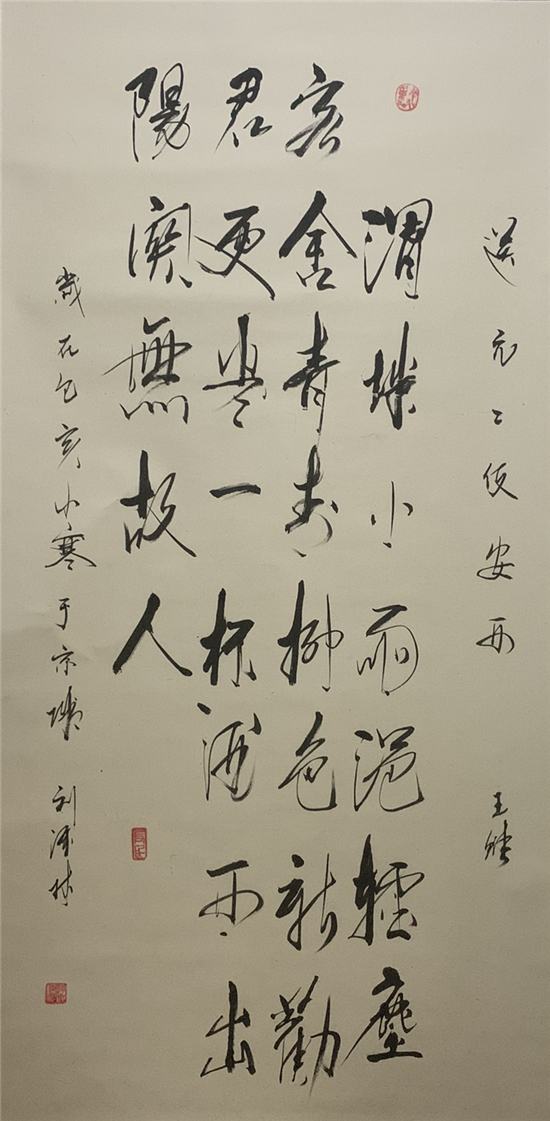 送元二使安西 王維
渭城小雨浥輕塵
客舍青青柳色新勸
君更盡一杯酒西出
陽關無故人
歲在己亥小寒于京城 刘林